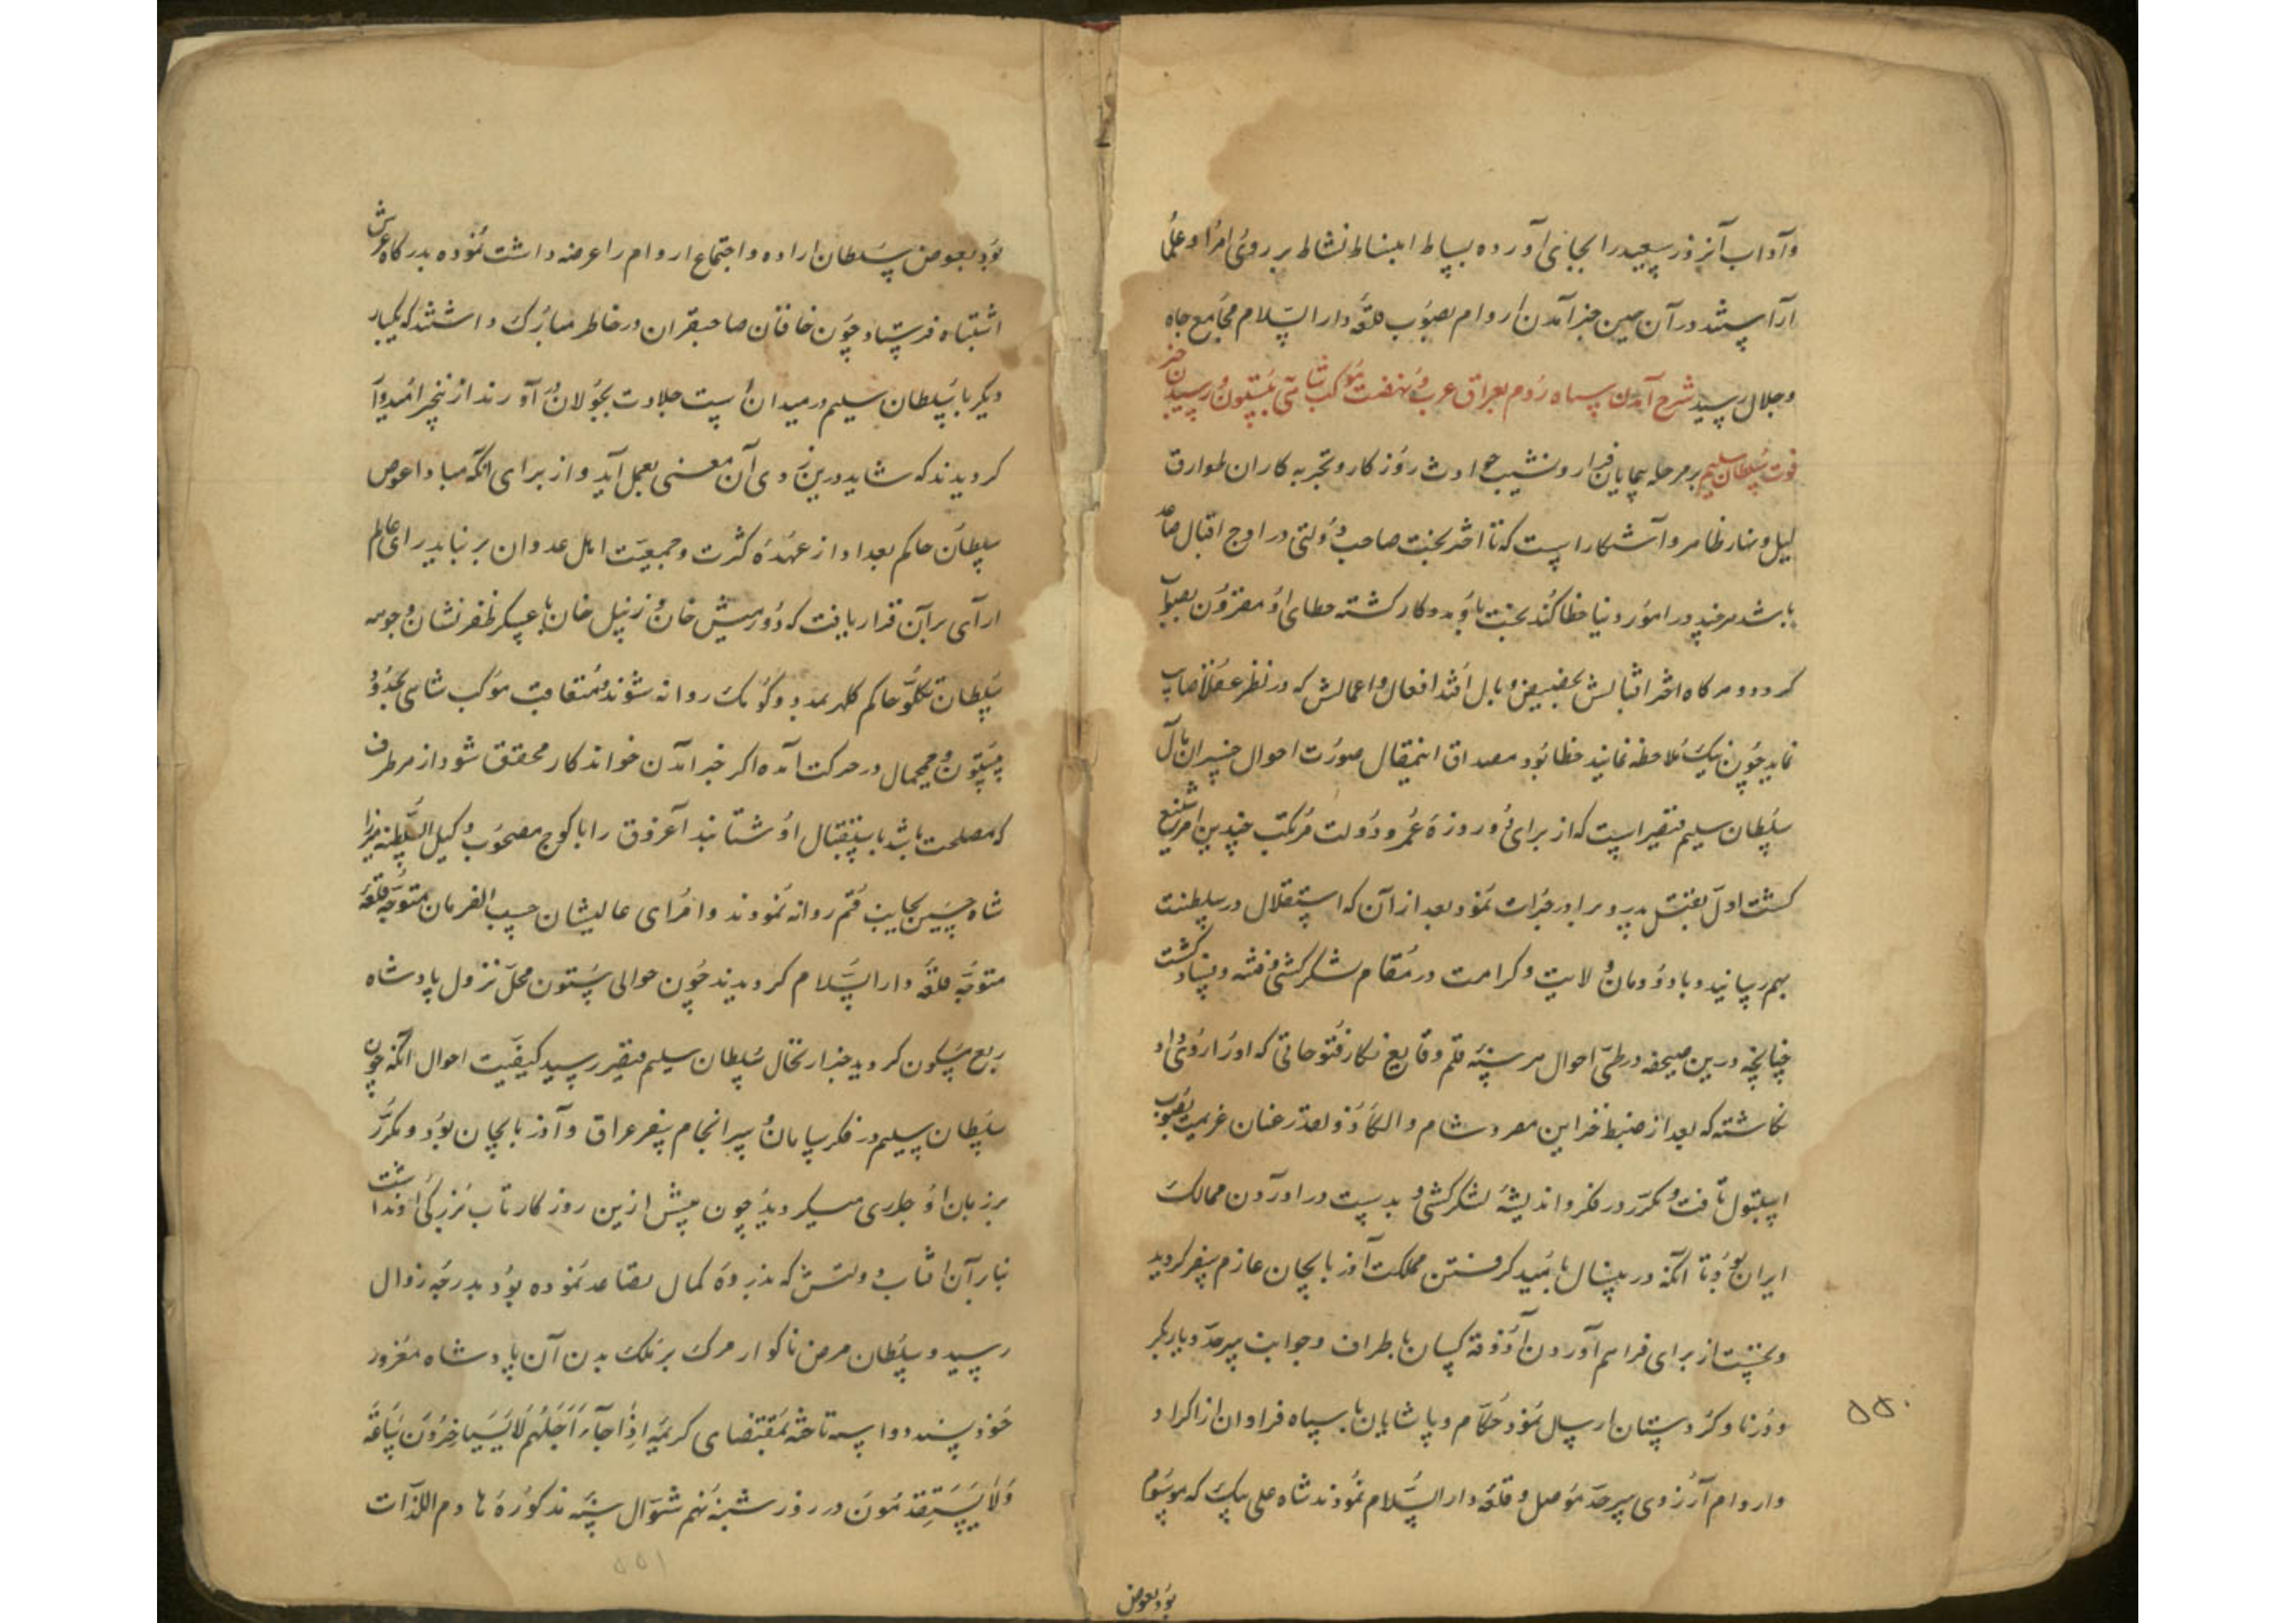 وآداب آنروز سعید را بجای آورده بساط انبساط نشاط بر روی امرا و علما
آراستند در آن حین خبر آمدن اروام بصوب قلعه دار السلام مجامع جاه
وجلال رسید شرح آمدن سپاه روم بعراق عرب و نهضت موکب شاهی تا بیستون و رسیدن خبر
فوت سلطان سلیم بر مرحله پیمایان فراز و نشیب حوادث روزکار و تجربه کاران طوارق
لیل ونهار ظاهر و آشکار است که تا اختر بخت صاحب دولتی در اوج اقبال صاعد
باشد هر چند در امور دنیا خطا کند بخت یاور مددکار کشته خطای او مقرون بصواب
کردد و هرکاه اختر اقبالش بحضیض وبال افتد افعال و اعمالش که در نظر عقلا صایب
نماید چون نیک ملاحظه نمایند خطا بود مصداق اینمقال صورت احوال خسران مآل
سلطان سلیم قیصر است که از برای دو روزه عمر و دولت مرتکب چندین امر شنیع
کشت اول بقتل پدر و برادر جرات نمود بعد از آن که استقلال در سلطنت
بهم رسانید و با دودمان ولایت و کرامت در مقام لشکر کشی و فتنه و فساد کشت
چنانچه درین صحیفه در طی احوال هر سنه قلم وقایع نکار فتوحاتی که او را روی داد
نکاشته که بعد از ضبط خزاین مصر و شام و الکاء ذو القدر عنان عزیمت بصوب
استنبول تافت و مکرر در فکر و اندیشه لشکر کشی و بدست در اوردن ممالک
ایران بود تا انکه در ینسال بامید کرفتن مملکت آذربایجان عازم سفر کردید
و نخست از برای فراهم آوردن آذوقه کسان باطراف و جوانب سرحد و دیار بکر
و ورنا و کردستان ارسال نمود حکام و پاشایان با سپاه فراوان از اکراد
و اروام آرزوی سرحد موصل و قلعه دار السلام نمودند شاه علی بیک که موسوم
۵۵۰
بود بعوض
بود بعوض سلطان اراده و اجتماع اروام را عرضه داشت نموده بدرکاه عرش
اشتباه فرستاد چون خاقان صاحبقران در خاطر مبارک داشتند که یکبار
دیکر با سلطان سلیم در میدان اسب جلادت بجولان آورند از ینخبر امیدوار
کردیدند که شاید درین زودی آن معنی بعمل آید و از برای انکه مبادا عوض
سلطان حاکم بغداد از عهده کثرت و جمعیت اهل عدوان بر نیاید رای عالم
ارآی بر آن قرار یافت که دورمیش خان و زینل خان با عسکر ظفر نشان و جوهه
سلطان تکلو حاکم کلهر بمدد و کومک روانه شوند و متعاقب موکب شاهی بحدود
بیستون و چمچمال در حرکت آمده اکر خبر آمدن خواندکار محقق شود از هر طرف
که مصلحت باشد باستقبال او شتابند آغروق را با کوچ مصحوب وکیل السلطنه میرزا
شاه حسین بجانب قم روانه نمودند و امرای عالیشان حسب الفرمان متوجه قلعه
متوجه قلعه دار السلام کردیدند چون حوالی بیستون محل نزول پادشاه
ربع مسکون کردید خبر ارتحال سلطان سلیم قیصر رسید کیفیت احوال انکه چون
سلطان سلیم در فکر سامان و سرانجام سفر عراق و آذربایجان بود و مکرر
بر زبان او جاری میکردید چون پیش ازین روزکار تاب بزرکی او نداشت
بنابر آن آفتاب دولتش که بذروه کمال تصاعد نموده بود بدرجه زوال
رسید و سلطان مرض ناکوار مرک بر ملک بدن آن پادشاه مغرور
خود پسند دو اسبه تاخته بمقتضای کریمه اذا جآء اجلهم لا یستاخرون ساعة
ولا یستقدمون در روز شنبه نهم شوال سنه مذکوره هادم اللذات
۵۵۱